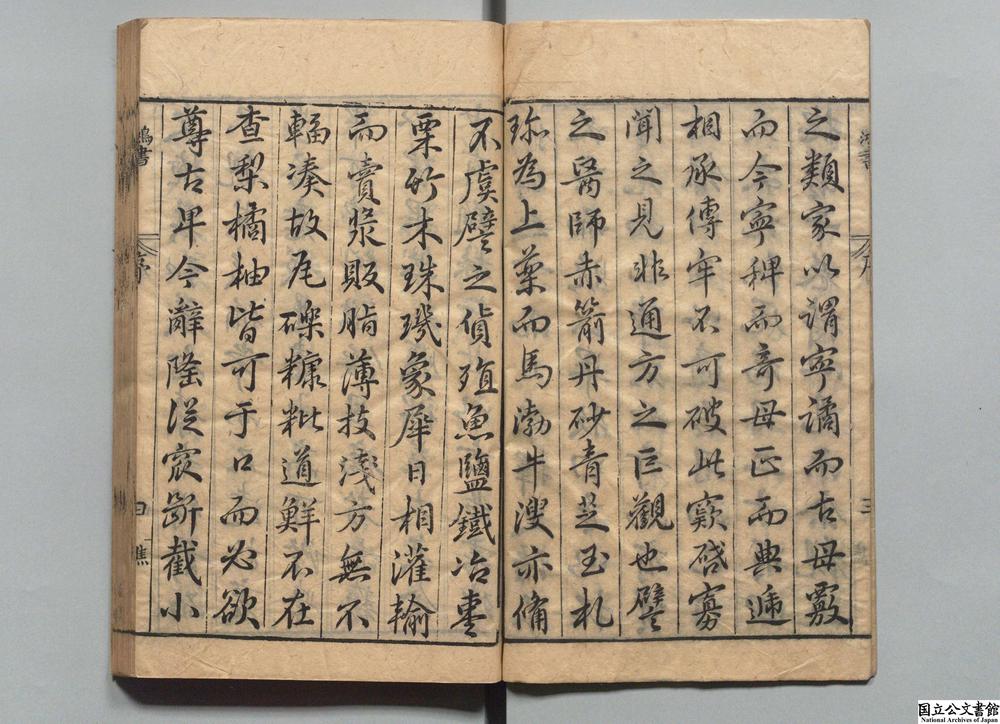 之類家以謂寧譎而古毋覈
而今寧稗而奇毋正而典遞
相承傳牢不可破此窾啓寡
聞之見非通方之巨觀也譬
之醫師赤箭丹砂青芝玉札
珎為上藥而馬渤牛溲亦偹
不虞譬之貨殖魚鹽鐵冶棗
栗竹木珠璣象犀日相灌輸
而賣漿販脂薄技淺方無不
輻湊故瓦礫糠粃道鮮不在
查梨橘柚皆可于口而必欲
尊古卑今辭隆從窾斷截小
鴻書
序
三
鴻書
序
四
國立公文書館
National Archives of Japan